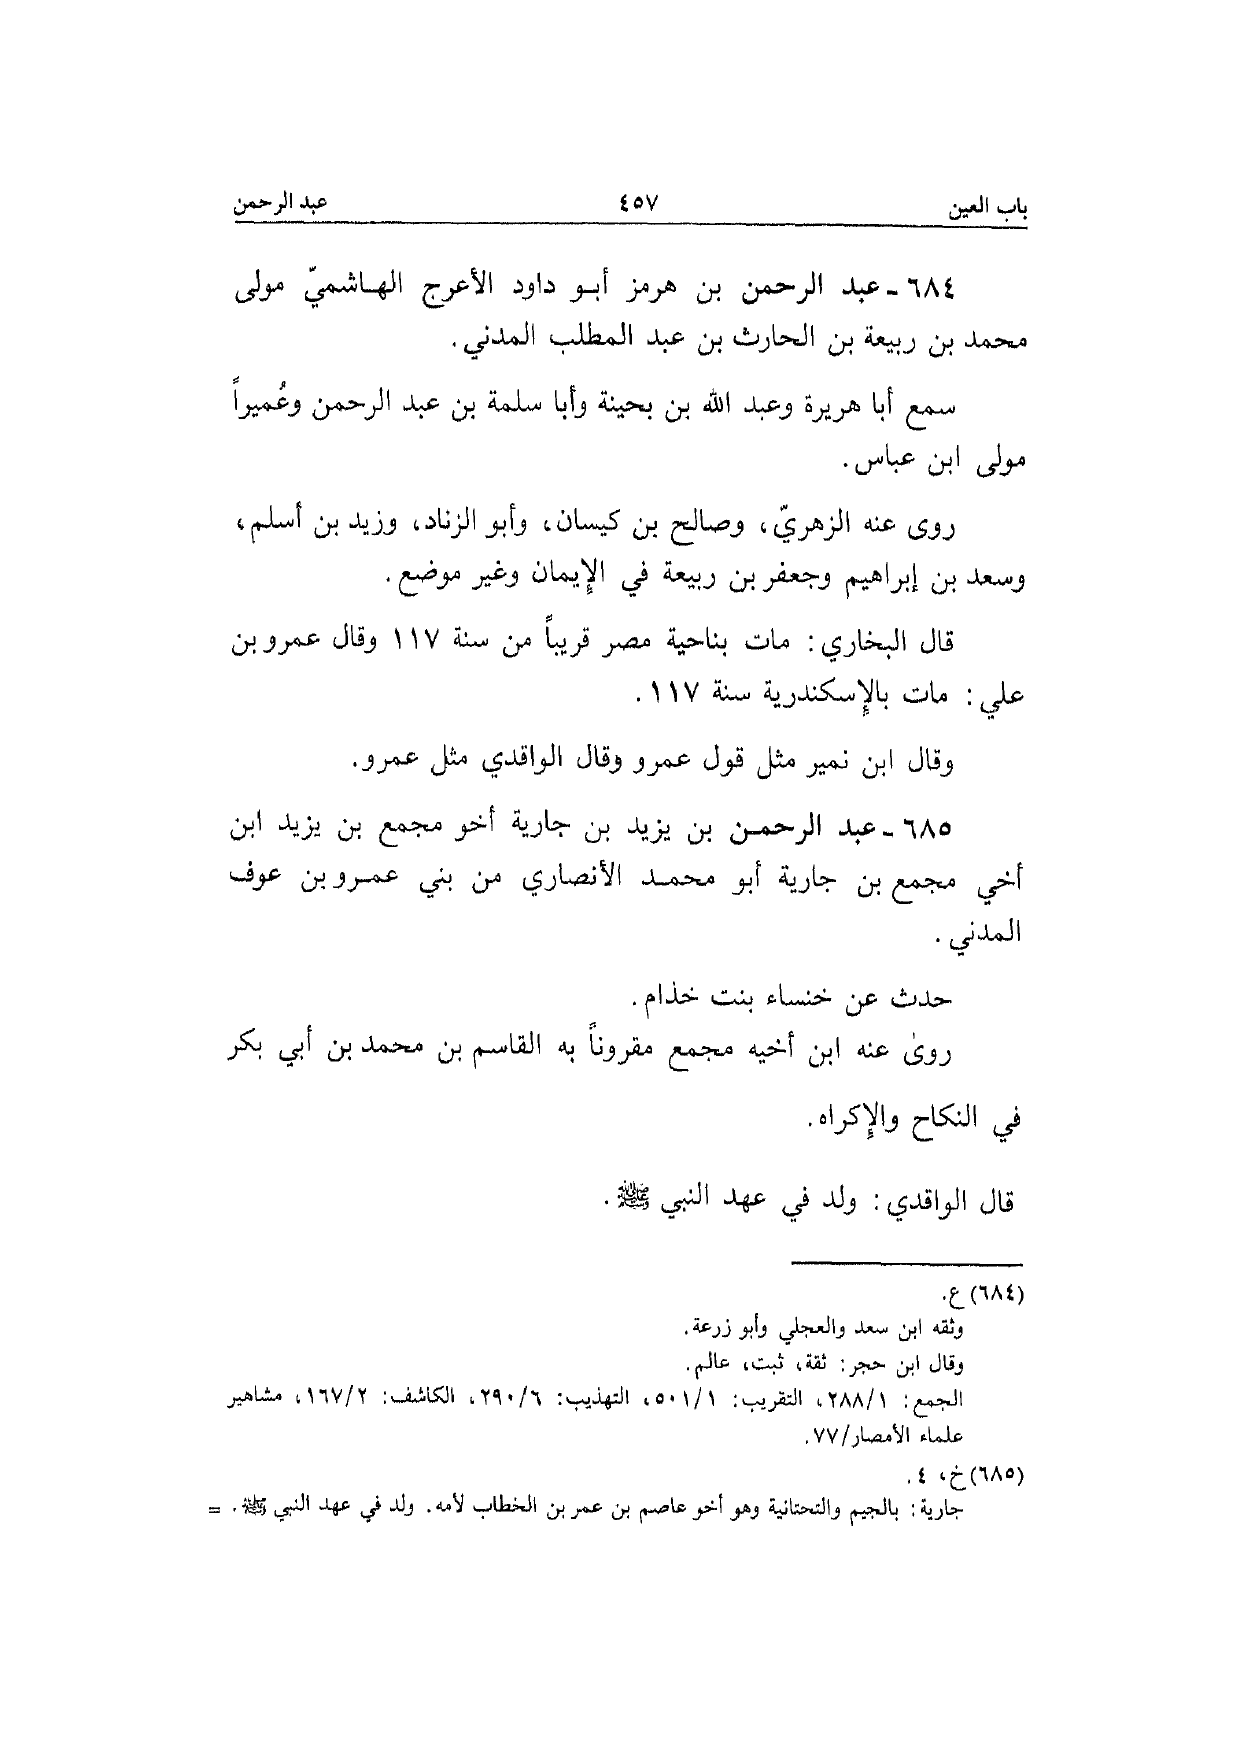 باب العين ٤٥٧ عبد الرحمن
٦٨٤ ـ عبد الرحمن بن هرمز أبو داود الأعرج الهاشميّ مولى
محمد بن ربيعة بن الحارث بن عبد المطلب المدني.
سمع أبا هريرة وعبد الله بن بحينة وأبا سلمة بن عبد الرحمن وعُميراً
مولى ابن عباس.
روى عنه الزهريّ، وصالح بن كيسان، وأبو الزناد، وزيد بن أسلم،
وسعد بن إبراهيم وجعفر بن ربيعة في الإيمان وغير موضع.
قال البخاري: مات بناحية مصر قريباً من سنة ١١٧ وقال عمرو بن
علي: مات بالإسكندرية سنة ١١٧.
وقال ابن نمير مثل قول عمرو وقال الواقدي مثل عمرو.
٦٨٥ ـ عبد الرحمن بن يزيد بن جارية أخو مجمع بن يزيد ابن
أخي مجمع بن جارية أبو محمد الأنصاري من بني عمرو بن عوف
المدني.
حدث عن خنساء بنت خذام.
روىٰ عنه ابن أخيه مجمع مقروناً به القاسم بن محمد بن أبي بكر
في النكاح والإكراه.
قال الواقدي: ولد في عهد النبي ﷺ.
(٦٨٤) ع.
وثقه ابن سعد والعجلي وأبو زرعة.
وقال ابن حجر: ثقة، ثبت، عالم.
الجمع: ٢٨٨/١، التقريب: ٥٠١/١، التهذيب: ٢٩٠/٦، الكاشف: ١٦٧/٢، مشاهير
علماء الأمصار/٧٧.
(٦٨٥) خ، ٤.
جارية: بالجيم والتحتانية وهو أخو عاصم بن عمر بن الخطاب لأمه. ولد في عهد النبي ﷺ. =